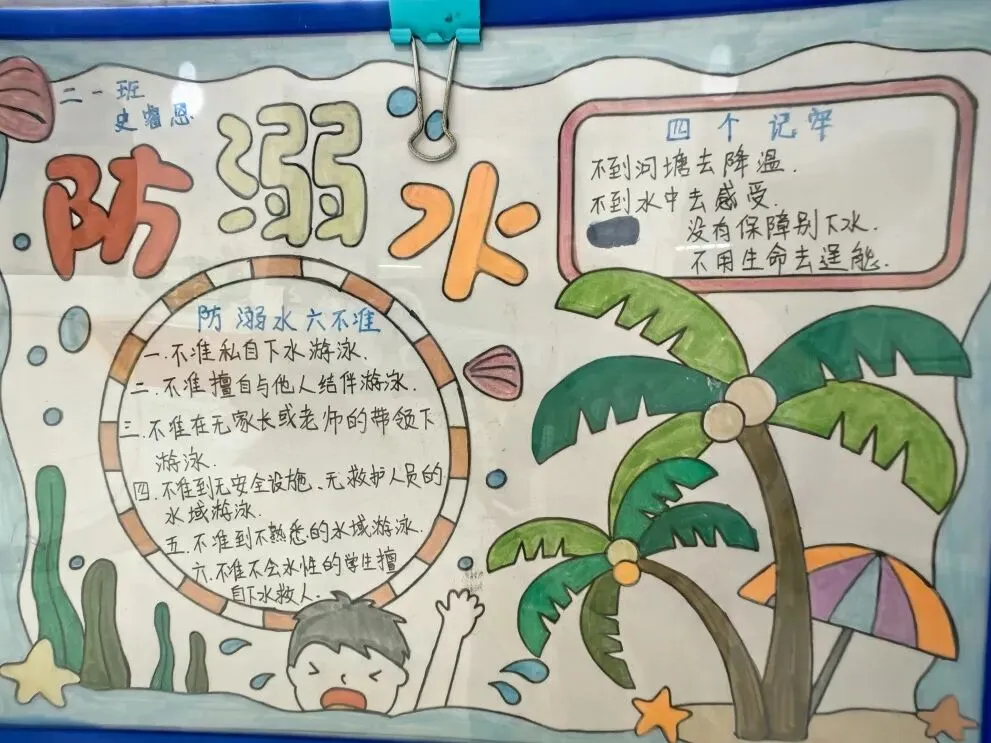 二一班
史睿恩
防溺水
四个记牢
不到河塘去降温.
不到水中去感受.
没有保障别下水.
不用生命去逞能.
防溺水六不准
一.不准私自下水游泳.
二.不准擅自与他人结伴游泳.
三.不准在无家长或老师的带领下
游泳.
四.不准到无安全设施、无救护人员的
水域游泳.
五.不准到不熟悉的水域游泳.
六.不准不会水性的学生擅
自下水救人.